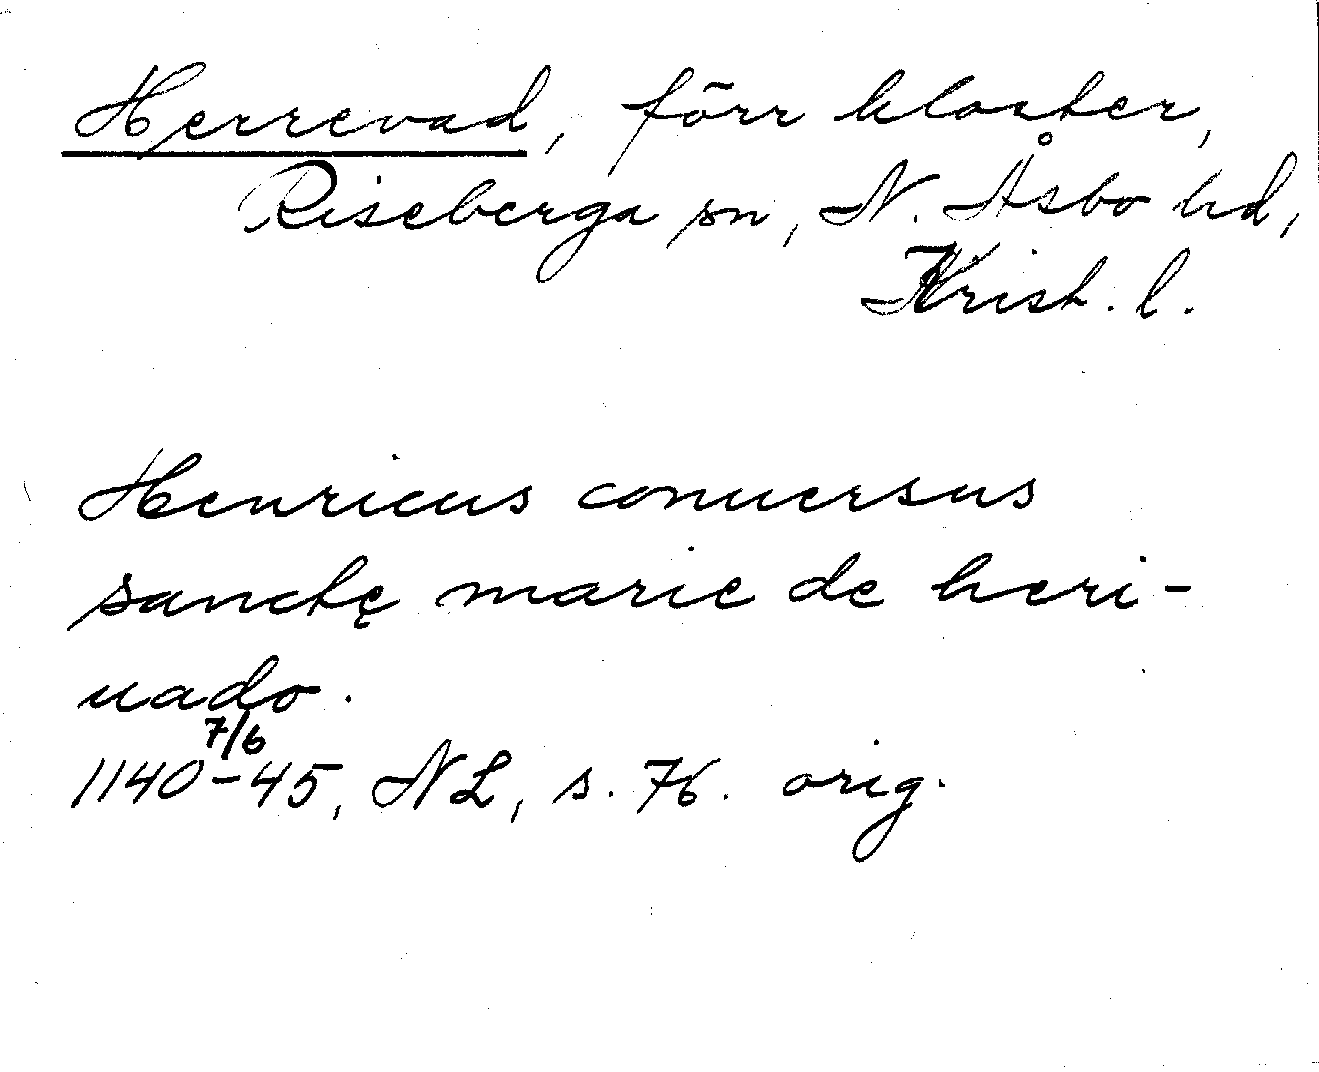 Herrevad, förr kloster,
Riseberga sn, N. Åsbo hd,
Krist. l.
Henricus conuersus
sanctę marie de heri-
uado.
7/6
1140-45, NL, s. 76. orig.